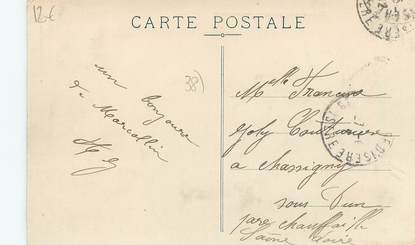 12€
CARTE POSTALE
38)
un bonjour
de Marcollin
Melle Francine
Joly Couturière
a chassigny
sous Dun
pare chauffaille
Saône Loire
ISERE
ISERE